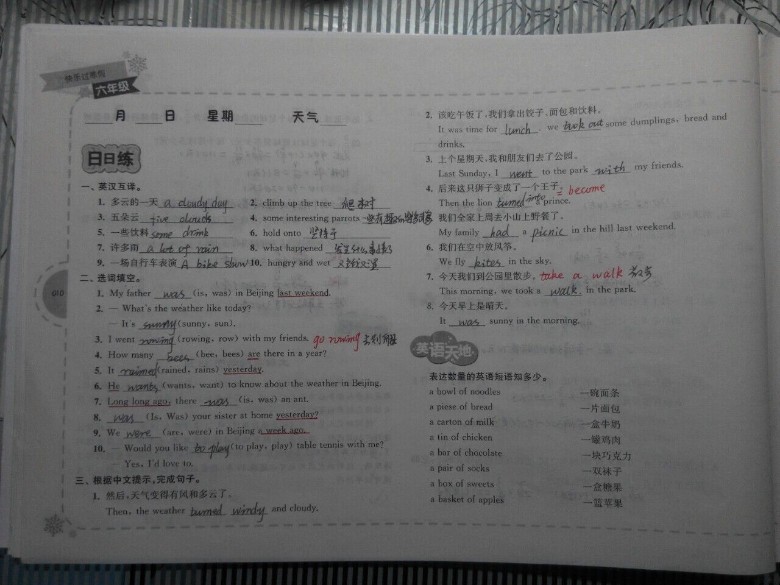 快乐过寒假
六年级
月 日 星期 天气
日日练
一、英汉互译。
1. 多云的一天 a cloudy day 2. climb up the tree 爬树
3. 五朵云 five clouds 4. some interesting parrots
5. 一些饮料 some drink 6. hold onto 坚持于
7. 许多雨 a lot of rain 8. what happened
9. 一场自行车表演 A bike show 10. hungry and wet 又饿又湿
二、选词填空。
1. My father was (is, was) in Beijing last weekend.
2. — What's the weather like today?
— It's sunny (sunny, sun).
3. I went rowing (rowing, row) with my friends. go rowing 去划船
4. How many bees (bee, bees) are there in a year?
5. It rained (rained, rains) yesterday.
6. He wants (wants, want) to know about the weather in Beijing.
7. Long long ago, there was (is, was) an ant.
8. was (Is, Was) your sister at home yesterday?
9. We were (are, were) in Beijing a week ago.
10. — Would you like to play (to play, play) table tennis with me?
— Yes, I'd love to.
三、根据中文提示,完成句子。
1. 然后,天气变得有风和多云了。
Then, the weather turned windy and cloudy.
2. 该吃午饭了,我们拿出饺子、面包和饮料。
It was time for lunch. we took out some dumplings, bread and
drinks.
3. 上个星期天,我和朋友们去了公园。
Last Sunday, I went to the park with my friends.
4. 后来这只狮子变成了一个王子。= become
Then the lion turned into prince.
5. 我们全家上周去小山上野餐了。
My family had a picnic in the hill last weekend.
6. 我们在空中放风筝。
We fly kites in the sky.
7. 今天我们到公园里散步。take a walk 散步
This morning, we took a walk in the park.
8. 今天早上是晴天。
It was sunny in the morning.
英语天地
表达数量的英语短语知多少。
a bowl of noodles 一碗面条
a piese of bread 一片面包
a carton of milk 一盒牛奶
a tin of chicken 一罐鸡肉
a bar of chocolate 一块巧克力
a pair of socks 一双袜子
a box of sweets 一盒糖果
a basket of apples 一篮苹果
010